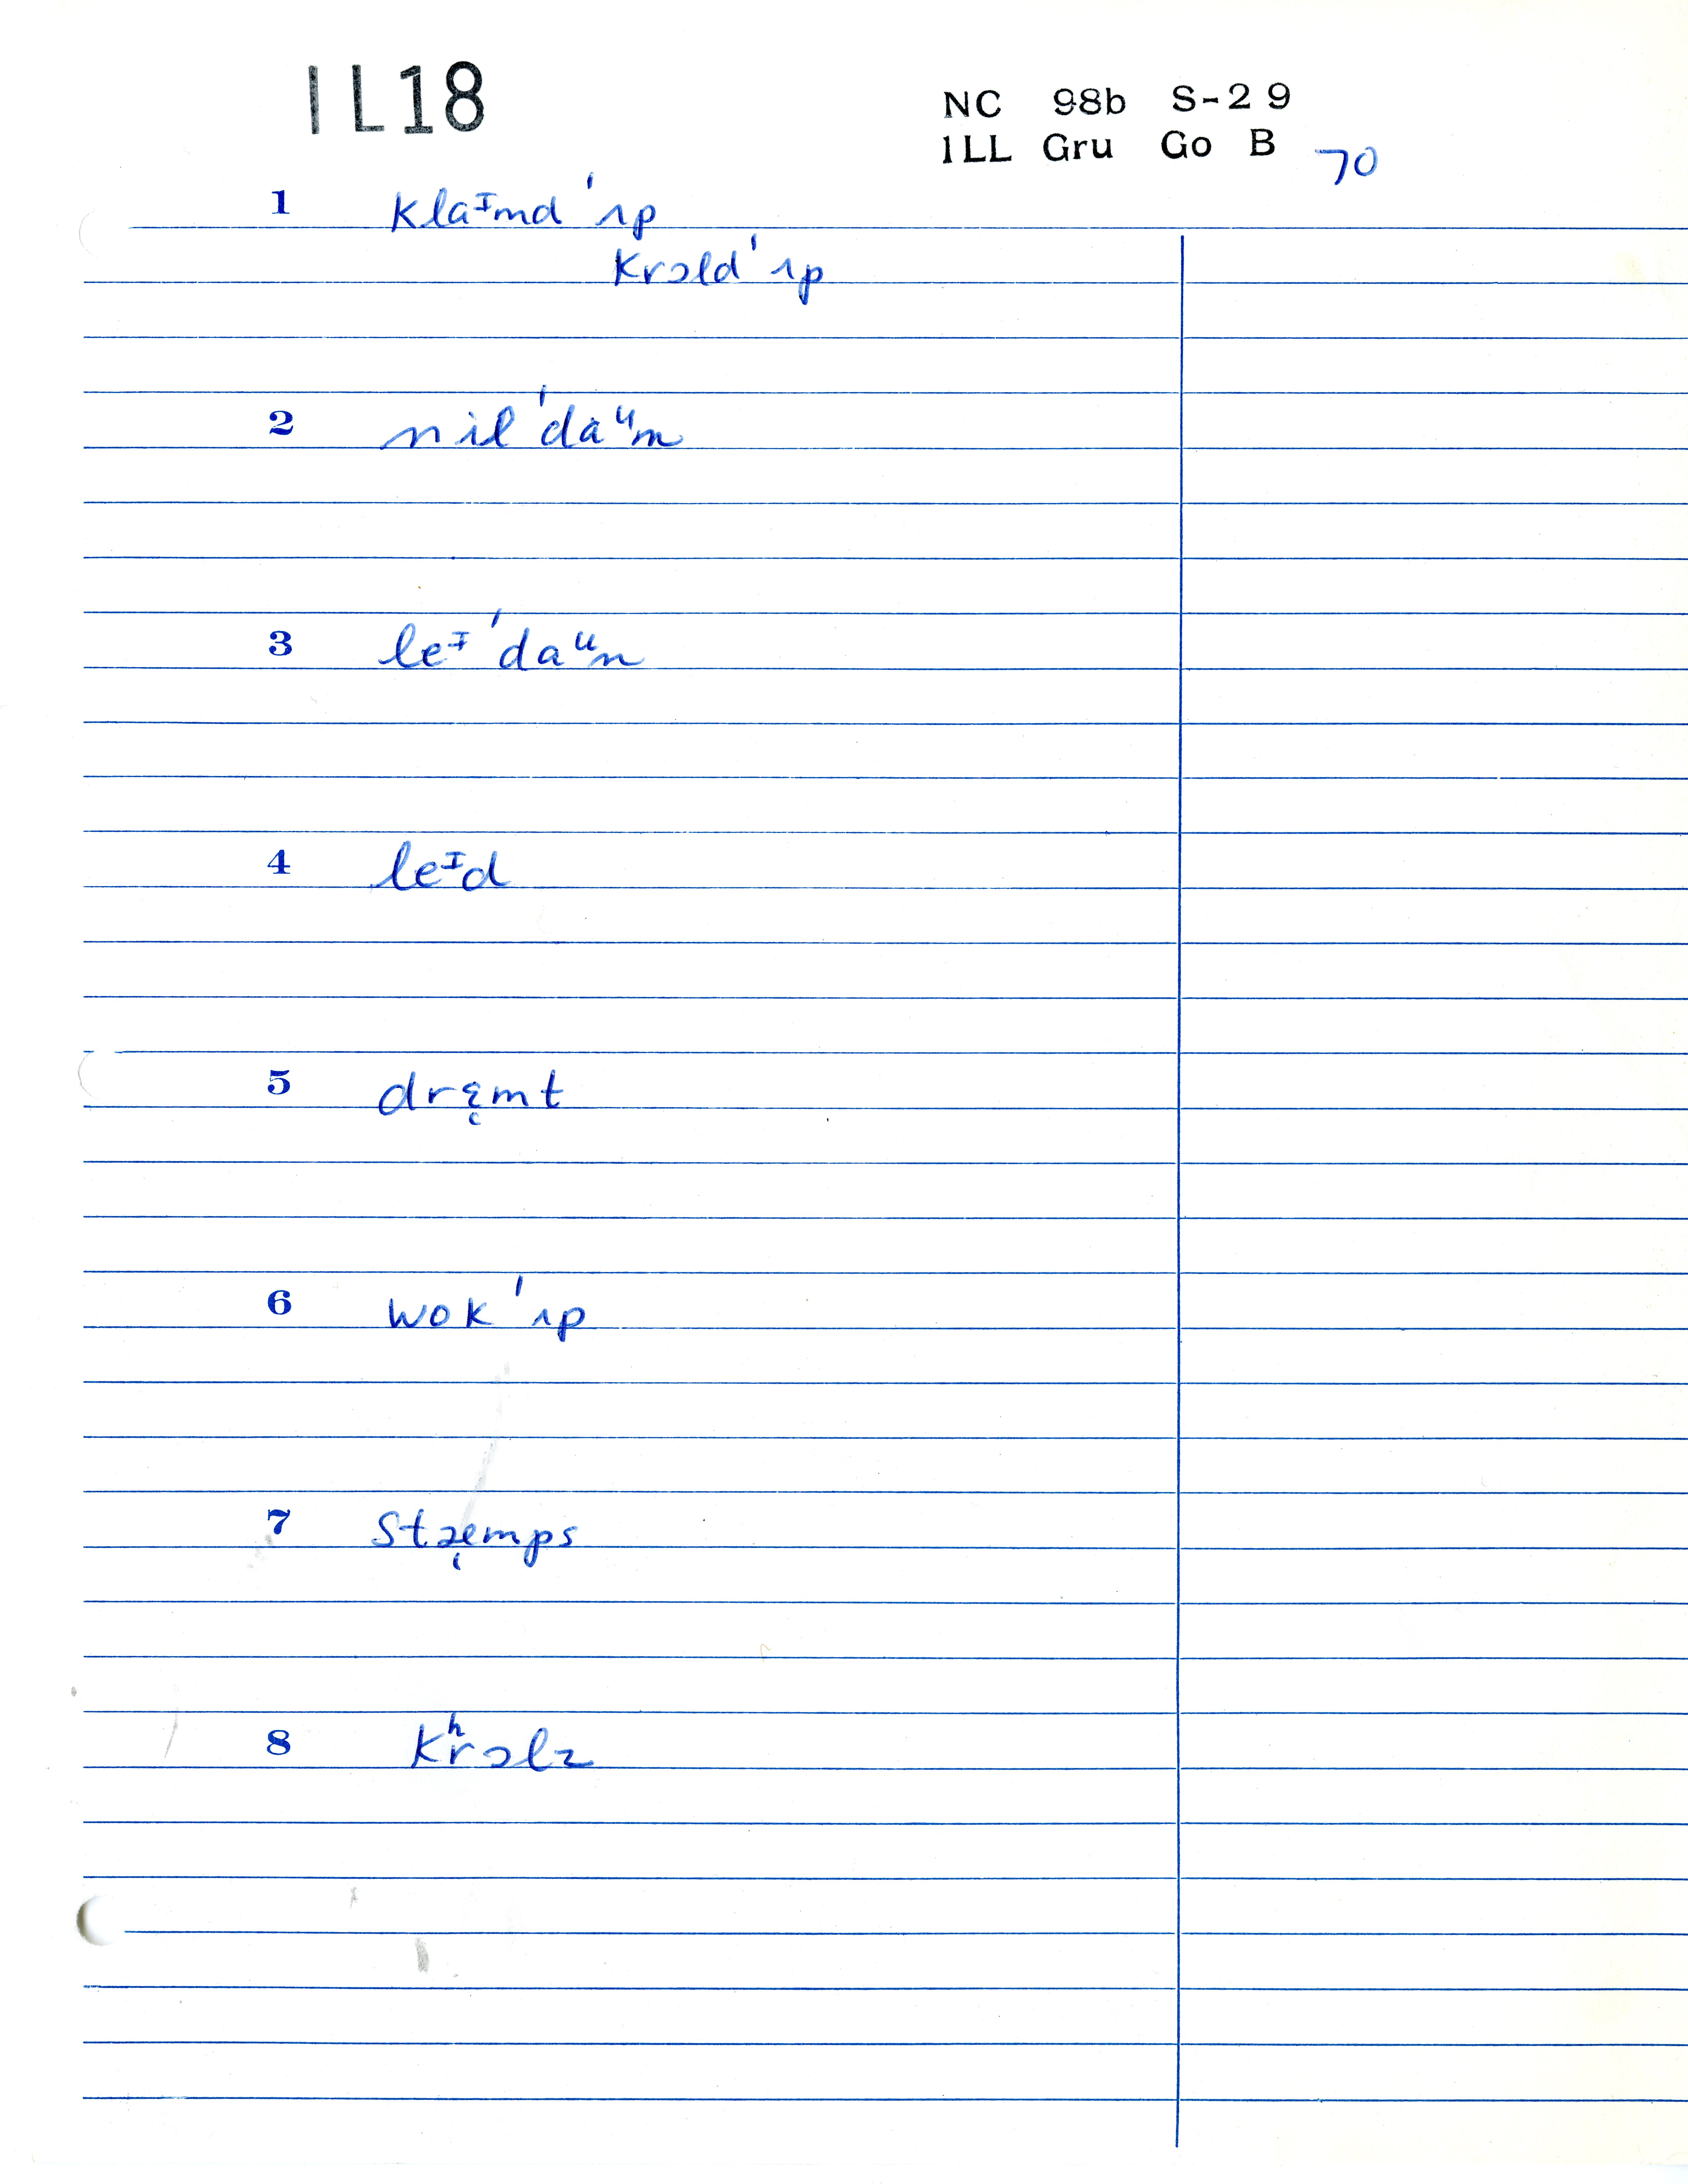 IL18
NC 98b S-29
ILL Gru Go B 70
1 klaᴵmd ˈʌp
krɔld ˈʌp
2 nil ˈdaᵘn
3 leᴵ ˈdaᵘn
4 leᴵd
5 drɛ̜mt
6 wok ˈʌp
7 stæ̜mps
8 kʰrɔlz